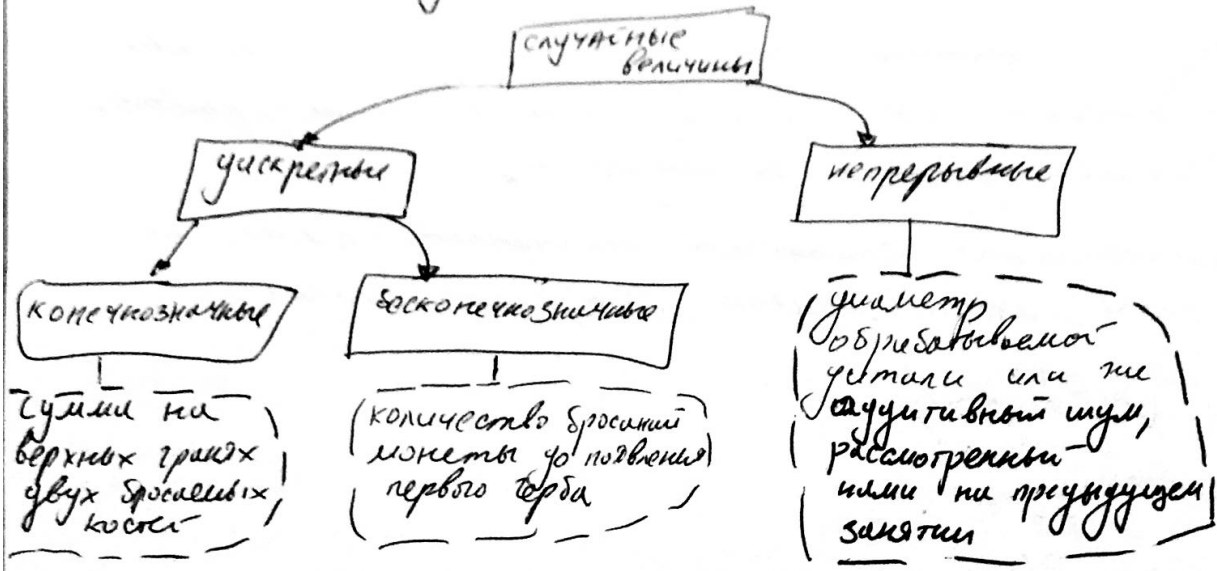 случайные
величины
дискретные
непрерывные
конечнозначные
бесконечнозначные
сумма на
верхних гранях
двух бросаемых
костей
количество бросаний
монеты до появления
первого герба
диаметр
обрабатываемой
детали или же
аудитивный шум,
рассмотренный
нами на предыдущем
занятии